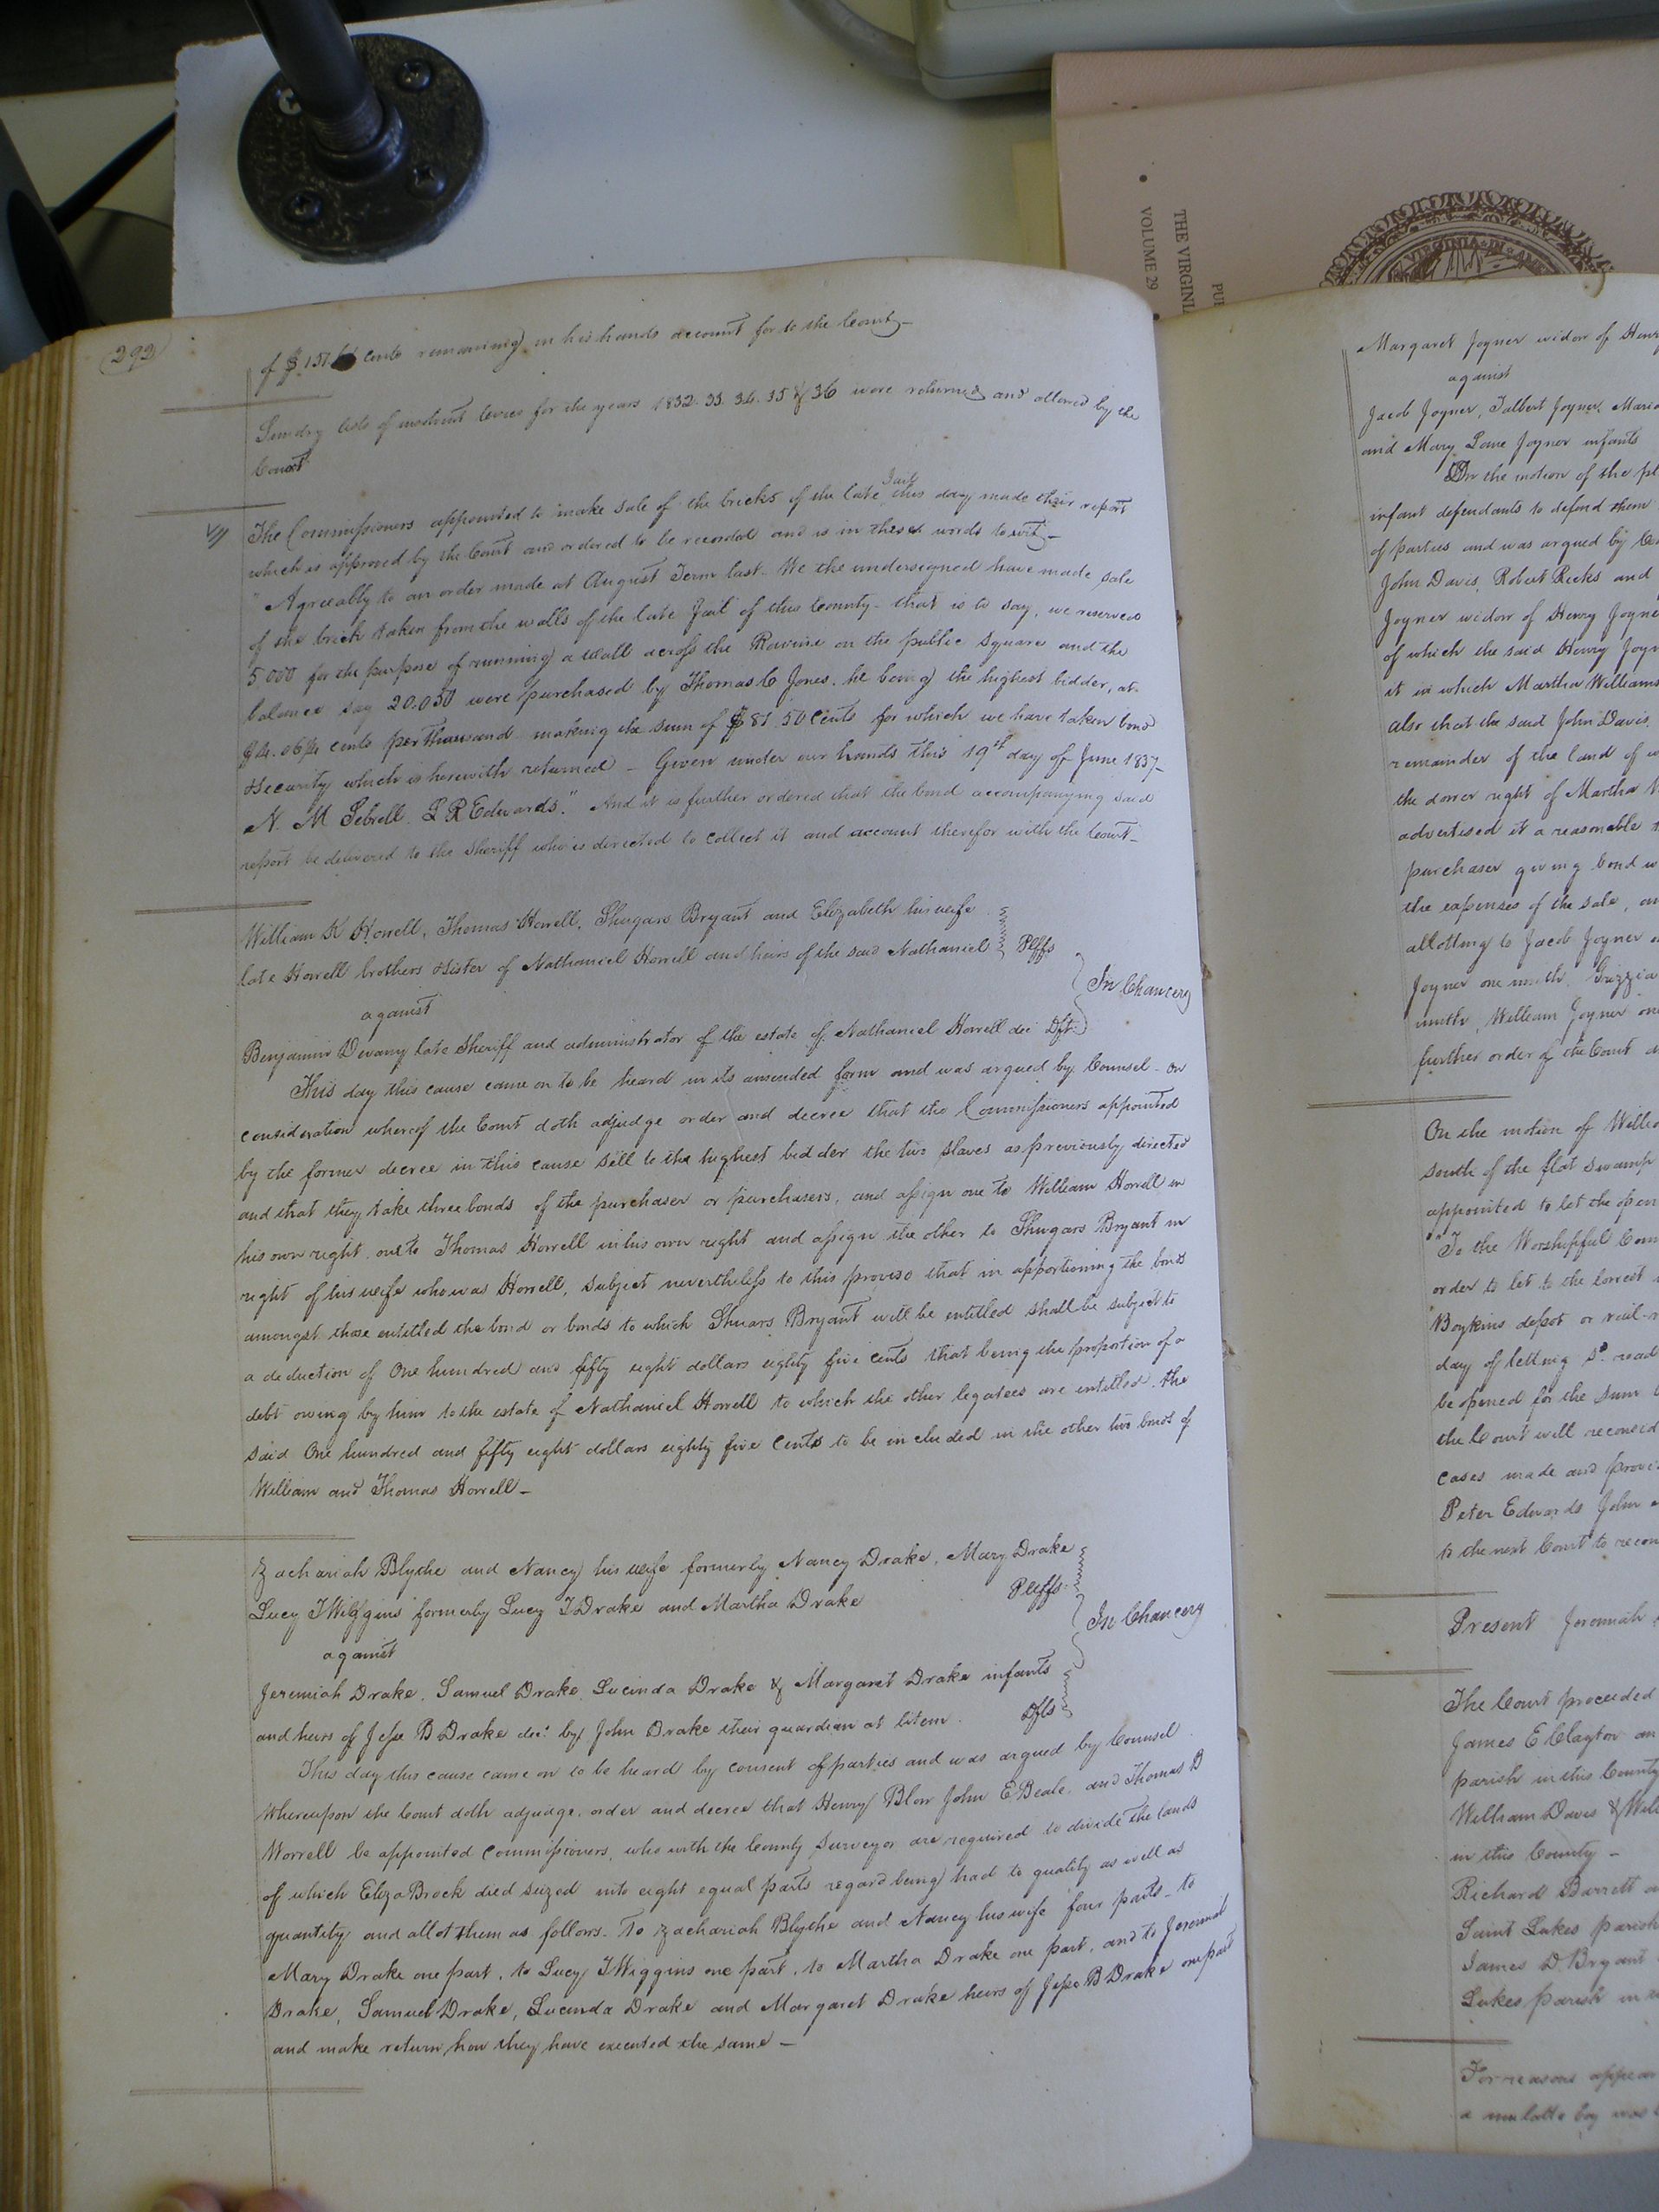 292
of $157 cents remaining in his hands account for to the Court—
Sundry lists of insolvent levies for the years 1832. 33. 34. 35 & 36 were returned and allowed by the
Court
Jail
The Commissioners appointed to make sale of the bricks of the late this day made their report
which is approved by the Court and ordered to be recorded and is in these words towit—
"Agreeably to an order made at August Term last. We the undersigned have made sale
of the brick taken from the walls of the late Jail of this County - that is to say, we reserved
5.000 for the purpose of running a wall across the Ravine on the public square and the
balance say 20.050 were purchased by Thomas C Jones. he being the highest bidder, at
$4.06¼ cents per thousand making the sum of $81.50 Cents for which we have taken bond
& security which is herewith returned — Given under our hands this 19th day of June 1837—
N. M Sebrell. L R Edwards." And it is further ordered that the bond accompanying said
report be delivered to the Sheriff who is directed to collect it and account therefor with the Court—
William K Horrell, Thomas Horrell, Shugars Bryant and Elizabeth his wife
late Horrell brothers & sister of Nathaniel Horrell and heirs of the said Nathaniel Plffs
In Chancery
against
Benjamin Devany late Sheriff and administrator of the estate of Nathaniel Horrell dec Dft
This day this cause came on to be heard in its amended form and was argued by Counsel - On
consideration whereof the Court doth adjudge order and decree that the Commissioners appointed
by the former decree in this cause sell to the highest bidder the two slaves as previously directed
and that they take three bonds of the purchaser or purchasers, and assign one to William Horrell in
his own right, one to Thomas Horrell in his own right and assign the other to Shugars Bryant in
right of his wife who was Horrell, subject nevertheless to this proviso that in apportioning the bonds
amongst those entitled the bond or bonds to which Shuars Bryant will be entitled shall be subject to
a deduction of One hundred and fifty eight dollars eighty five cents that being the proportion of a
debt owing by him to the estate of Nathaniel Horrell to which the other legatees are entitled, the
said One hundred and fifty eight dollars eighty five Cents to be included in the other two bonds of
William and Thomas Horrell—
Zachariah Blythe and Nancy his wife formerly Nancy Drake, Mary Drake
Lucy T Wiggins formerly Lucy T Drake and Martha Drake Plffs
In Chancery
against
Jeremiah Drake, Samuel Drake, Lucinda Drake & Margaret Drake infants
and heirs of Jesse B Drake dec. by John Drake their guardian at litem. Dfts
This day this cause came on to be heard by consent of parties and was argued by Counsel
Whereupon the Court doth adjudge, order and decree that Henry Blow John E Beale, and Thomas B
Worrell be appointed Commissioners, who with the County Surveyor are required to divide the lands
of which Eliza Brock died seized into eight equal parts regard being had to quality as well as
quantity and allot them as follows. To Zachariah Blythe and Nancy his wife four parts - to
Mary Drake one part, to Lucy T Wiggins one part, to Martha Drake one part, and to Jeremiah
Drake, Samuel Drake, Lucinda Drake and Margaret Drake heirs of Jesse B Drake one part
and make return how they have executed the same—
THE VIRGINI
VOLUME 29
PU
VIRGINIA IN AME
Margaret Joyner widow of Henr
against
Jacob Joyner, Talbert Joyner, Maria
and Mary Lane Joyner infants
On the motion of the pl
infant defendants to defend them
of parties and was argued by Co
John Davis, Robert Ricks and
Joyner widow of Henry Joyne
of which the said Henry Joyn
it in which Martha Williams
also that the said John Davis,
remainder of the land of w
the dower right of Martha W
advertised it a reasonable t
purchaser giving bond w
the expenses of the sale, an
allotting to Jacob Joyner
Joyner one ninth,
ninth, William Joyner on
further order of the Court
On the motion of Willia
South of the flat swamp
appointed to let the open
"To the Worshipful Cou
order to let to the lowest
Boykins depot or rail-r
day of letting sd. road
be opened for the sum
the Court will reconsid
cases made and provi
Peter Edwards John
to the next Court to recon
Present Jeremiah
The Court proceeded
James E Clayton an
parish in this County
William Davis & Will
in this County—
Richard Barrett a
Saint Lukes parish
James D. Bryant
Lukes parish in
For reasons appear
a mulatto boy was